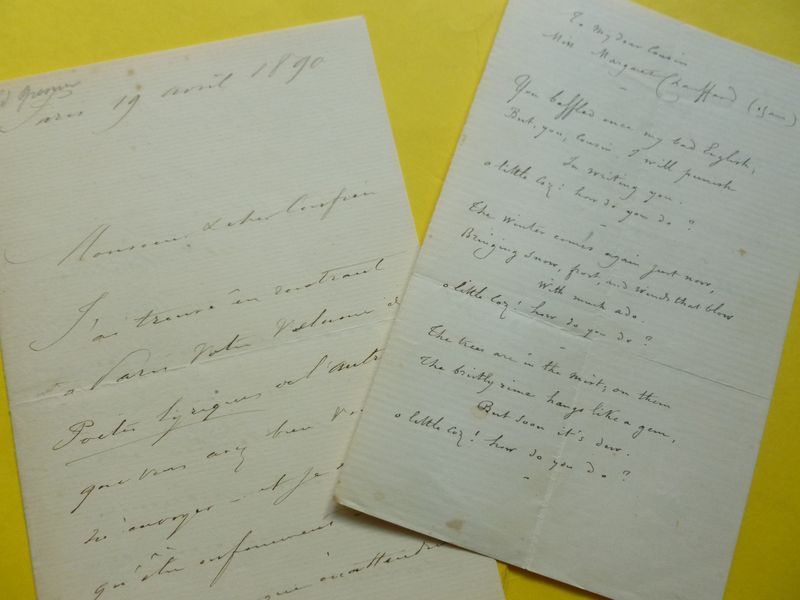 Paris 19 avril 1890
Monsieur & cher Confrère
J'ai trouvé en rentrant
à Paris votre volume de
Poètes lyriques de l'Autri
que vous avez bien vou
m'envoyer - et je
qu'être infiniment
m'attendre
To my dear Cousin
Miss Margaret
You baffled once my bad English;
But, you, cousin I will punish
In writing you.
o little Coz! how do you do?
The Winter comes again just now,
Bringing snow, frost, and winds that blow
With much ado.
o little Coz! how do you do?
The trees are in the mist; on them
The bristly rime hangs like a gem,
But soon it's dew.
o little Coz! how do you do?